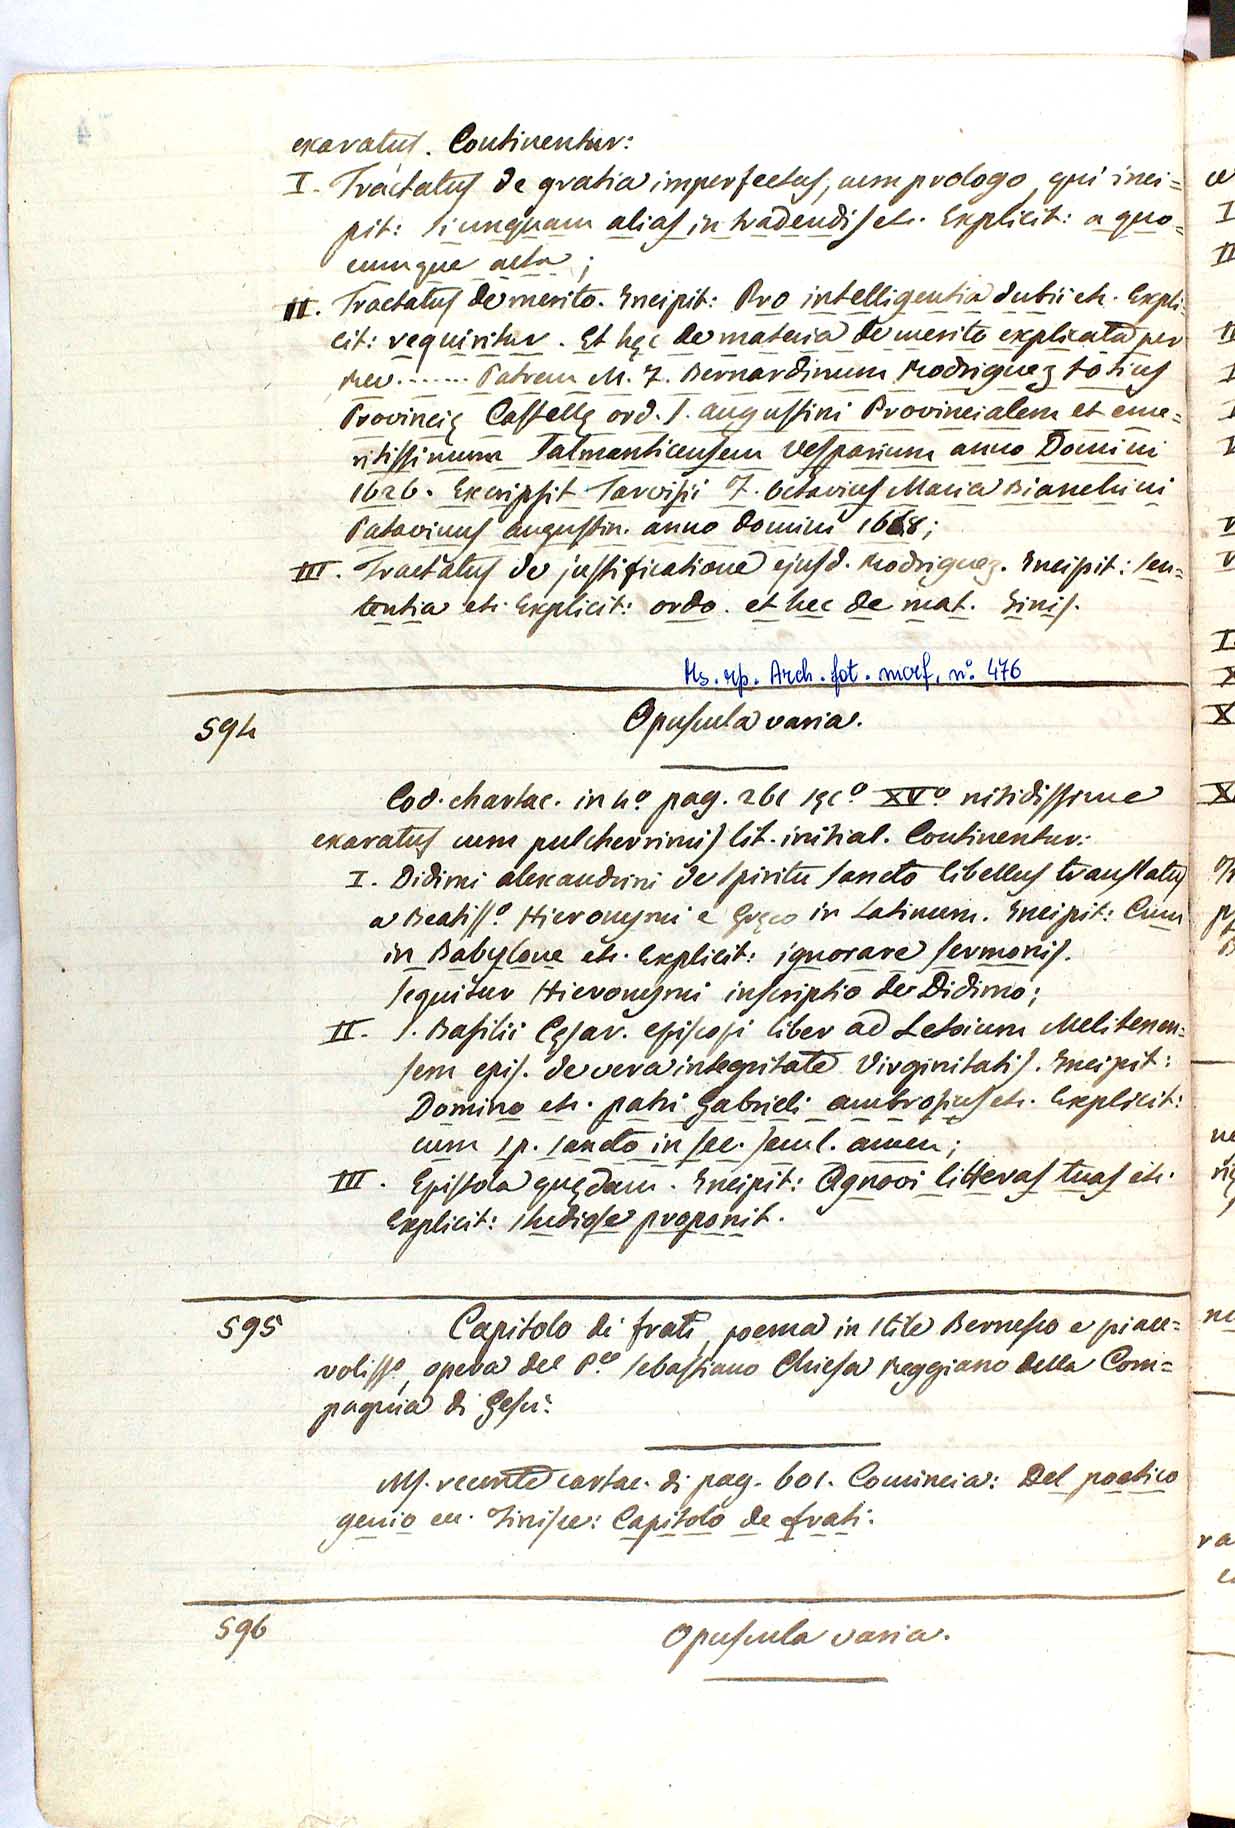 exaratus. Continentur:
I. Tractatus de gratia imperfectus, cum prologo, qui inci=
pit: si unquam alias in tradendis etc. Explicit: a quo=
cumque acta;
II. Tractatus de merito. Incipit: Pro intelligentia dubii etc. Expli=
cit: requiritur. Et hęc de materia de merito explicata per
Rev....... Patrem M. F. Bernardinum Rodriguez totius
Provincię Castellę ord. S. Augustini Provincialem et eme=
ritissimum Salmanticensem Vesparium anno Domini
1626. Excripsit Tarvisii F. Octavius Maria Bianchini
Patavinus augustin. anno domini 1668;
III. Tractatus de justificatione ejusd. Rodriguez. Incipit: sen=
tentia etc. Explicit: ordo. et hec de mat. Finis.
Ms. rip. Arch. fot. morf, n.° 476
594 Opuscula varia.
Cod. chartac. in 4.° pag. 261 sęc.° XV.° nitidissime
exaratus cum pulcherrimis lit. initial. Continentur:
I. Didimi alexandrini de Spiritu sancto libellus translatus
a Beatiss.° Hieronymi e gręco in Latinum. Incipit: Cum
in Babylone etc. Explicit: ignorare sermonis.
sequitur Hieronymi inscriptio de Didimo;
II. S. Basilii Cęsar. episcopi liber ad Letoium Melitenen=
sem epis. de vera integritate Virginitatis. Incipit:
Domino etc. patri Gabrieli ambrosius etc. Explicit:
cum sp. sancto in sec. secul. amen;
III. Epistola quędam. Incipit: Agnovi litteras tuas etc.
Explicit: studiose proponit.
595 Capitolo di frati, poema in stile Bernesco e piace=
voliss.°, opera del P.re Sebastiano Chiesa Reggiano della Com=
pagnia di Gesù:
Ms. recente cartac. di pag. 601. Comincia: Del poetico
genio ec. Finisce: Capitolo de frati.
596 Opuscula varia.